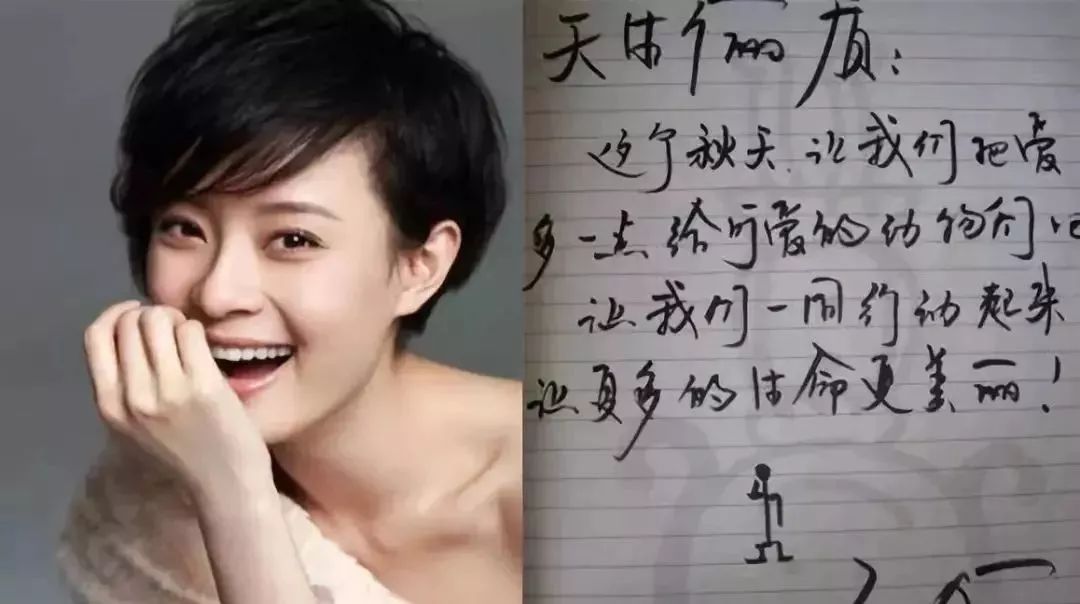 天生俪质：
这个秋天、让我们把爱
多一点给可爱的动物们吧
让我们一同行动起来
让更多的生命更美丽！